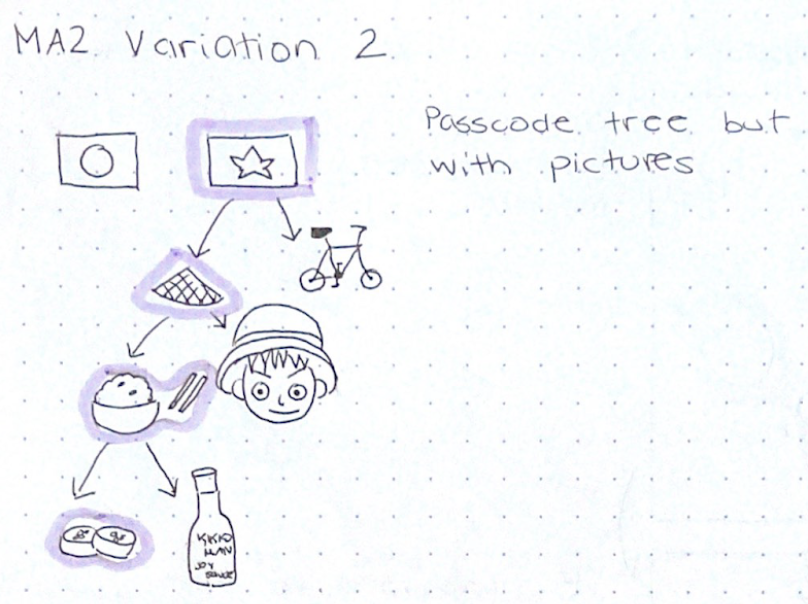 MA2 Variation 2
Passcode tree but
with pictures
KIKKO
MAN
SOY
SAUCE